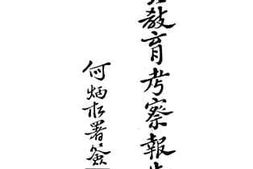 教育考察報告
何炳松署簽